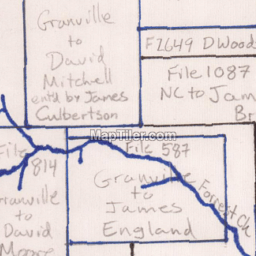 Granville
to
David
Mitchell
entd by James
Culbertson
FZ649 DWood
File 1087
NC to Jam
Br
MapTiler.com
File
814
Granville
to
David
Moore
File 587
Granville
to
James
England
Forrest Ck